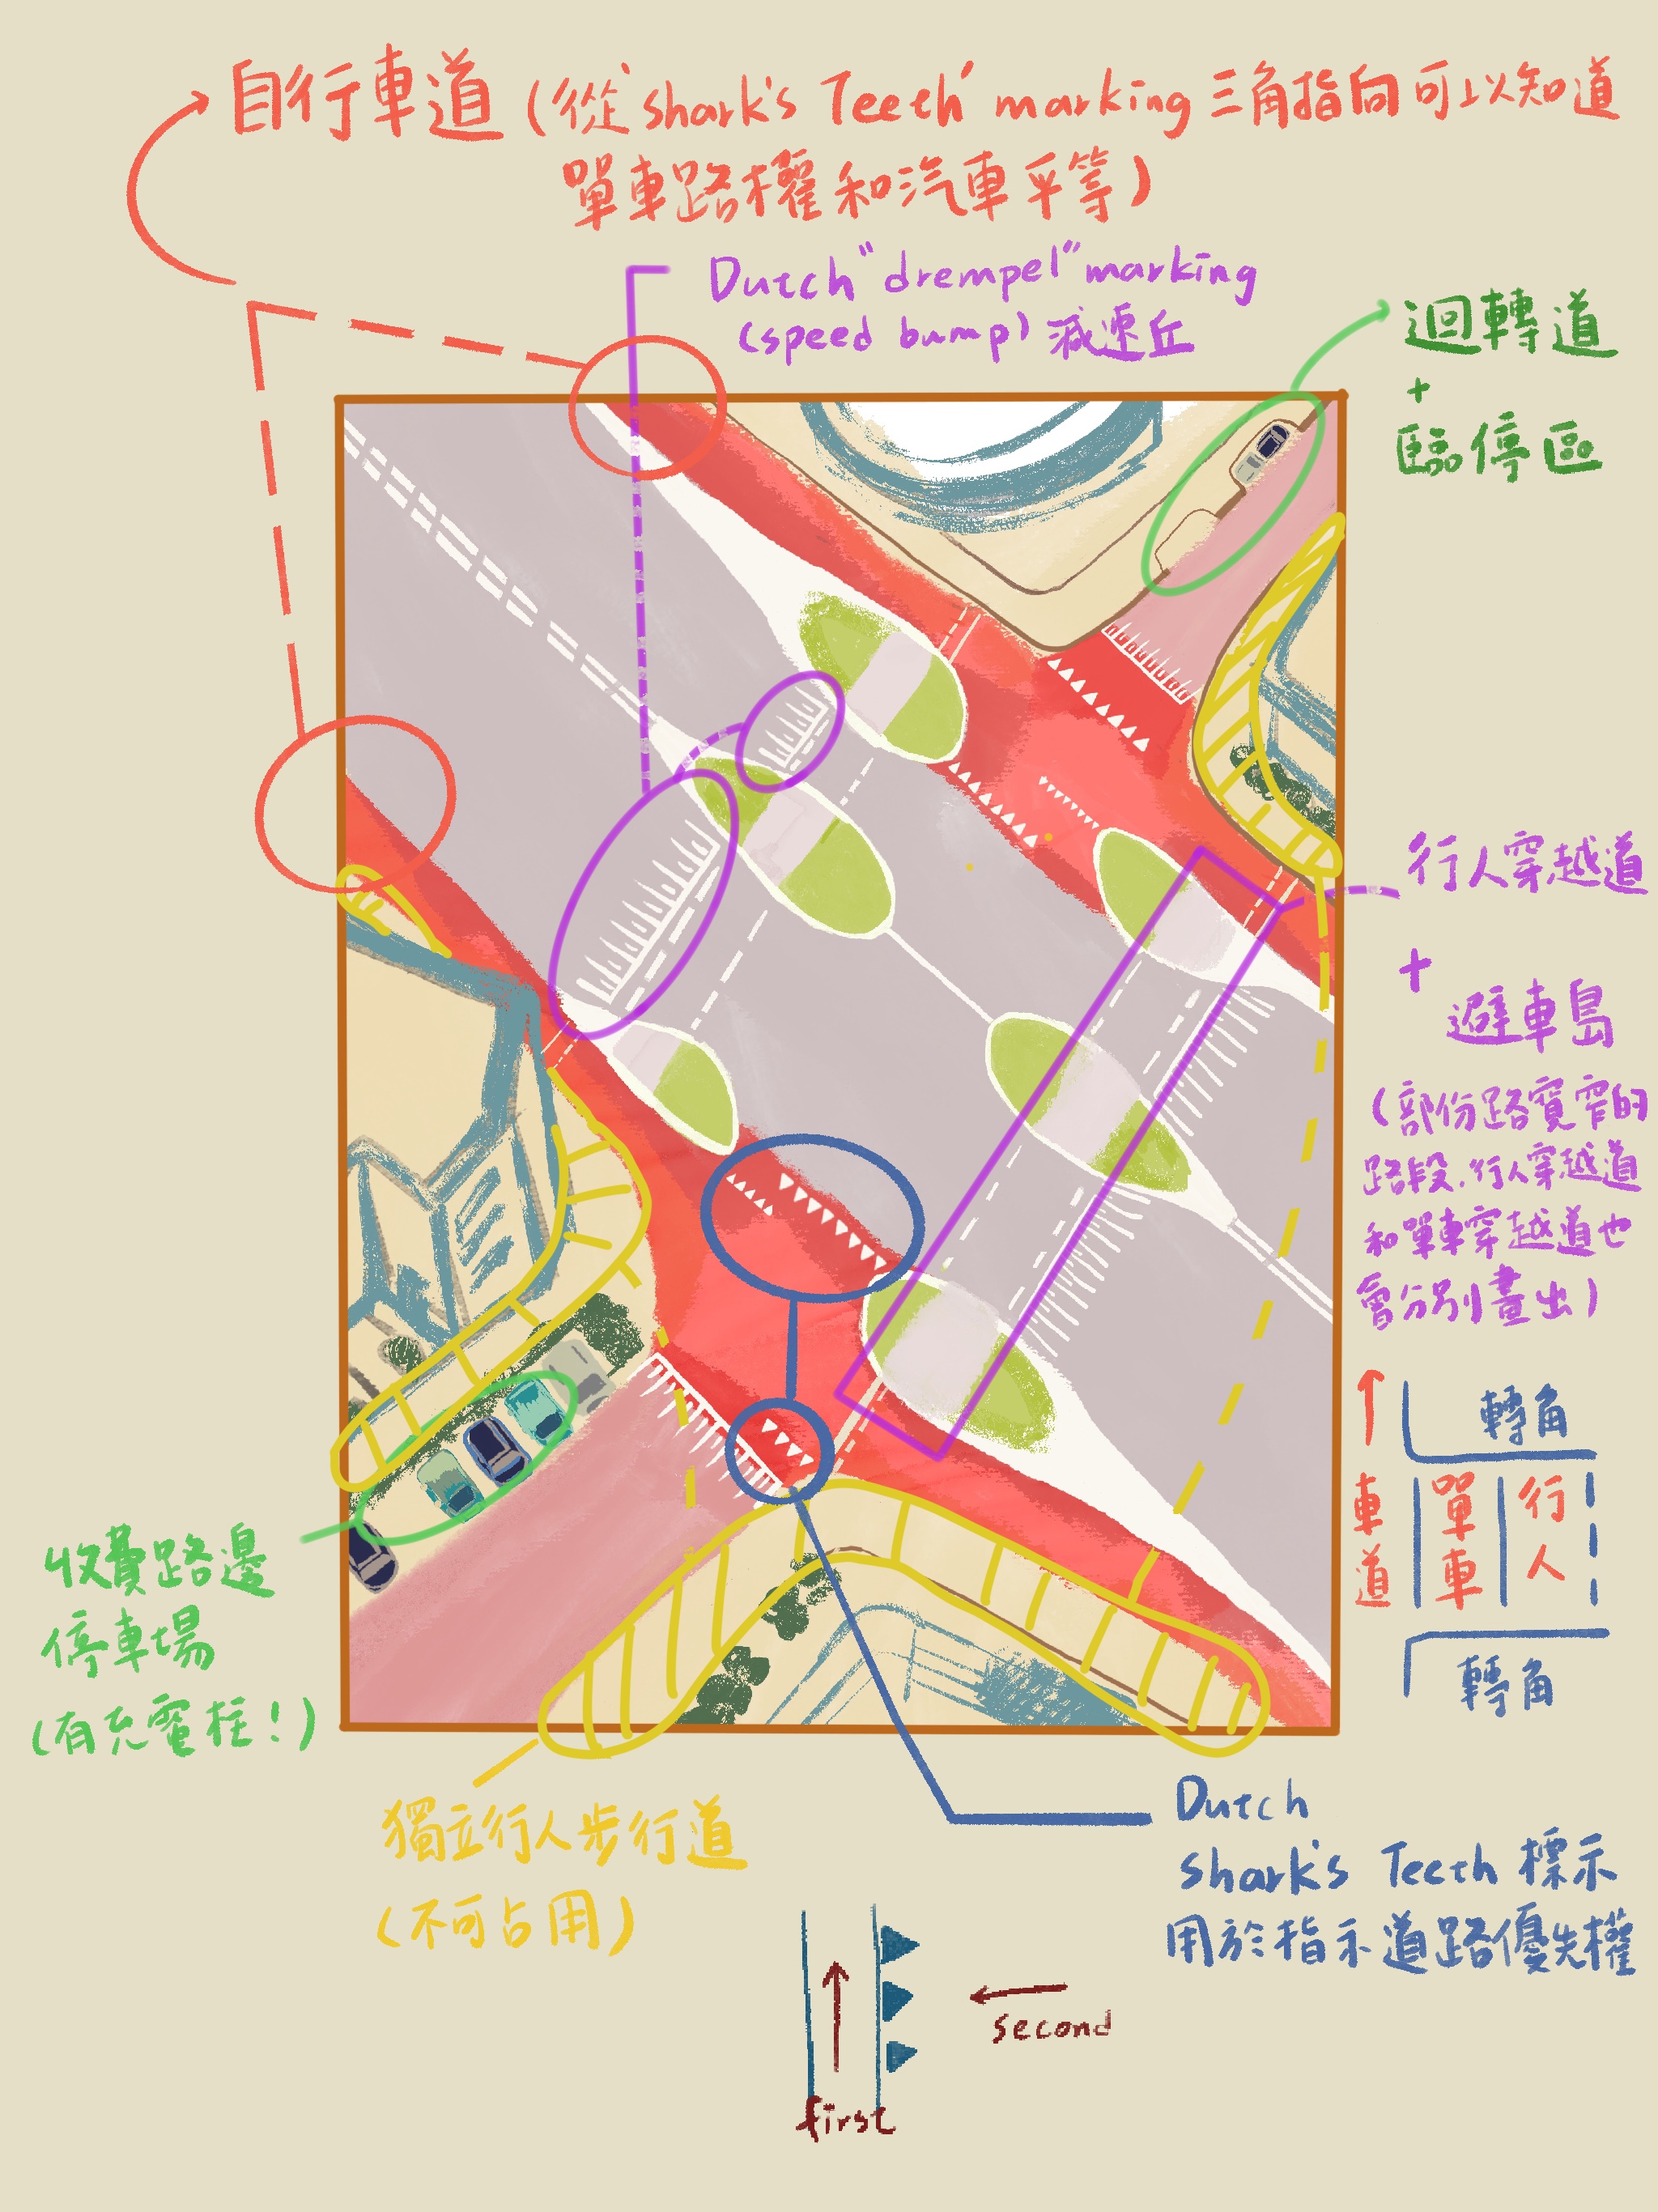 自行車道 (從'shark's Teeth' marking 三角指向可以知道
單車路權和汽車平等)
Dutch "drempel" marking
(speed bump) 減速丘
迴轉道
+
臨停區
行人穿越道
+
避車島
(部份路寬窄的
路段,行人穿越道
和單車穿越道也
會分別畫出)
轉角
車道
單車
行人
轉角
收費路邊
停車場
(有充電柱!)
獨立行人步行道
(不可占用)
Dutch
shark's Teeth 標示
用於指示道路優先權
second
first